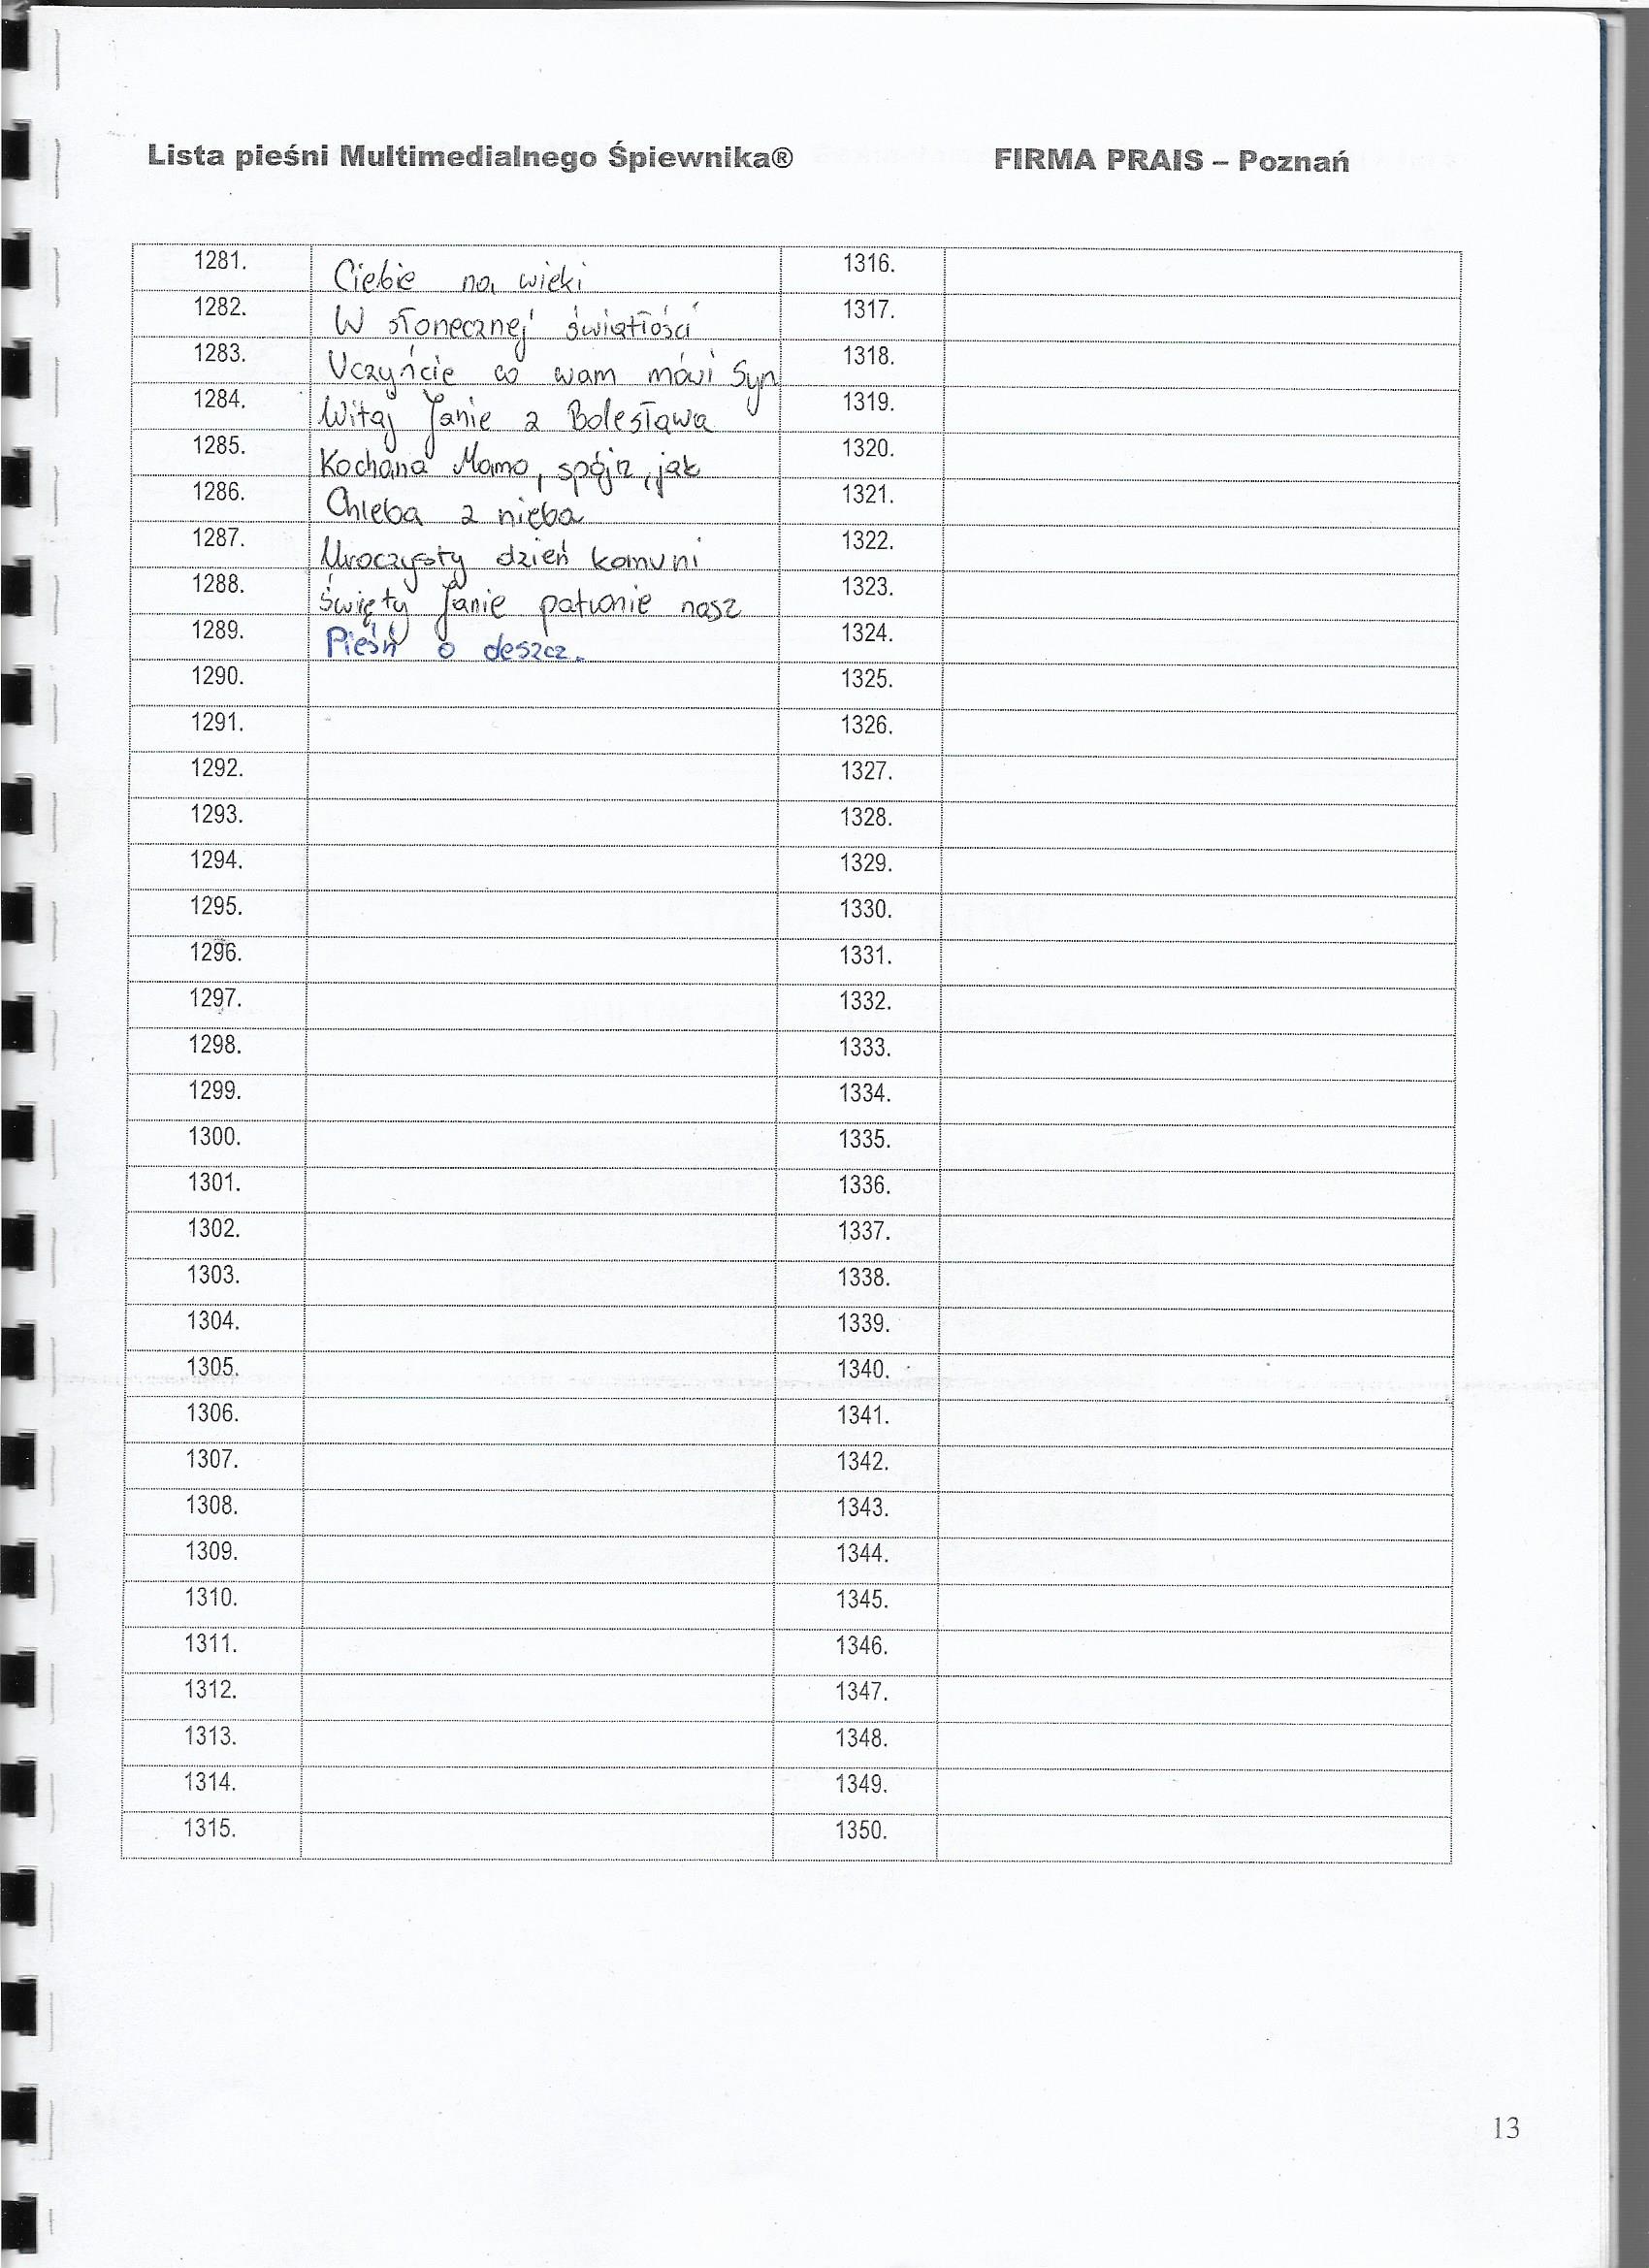 Lista pieśni Multimedialnego Śpiewnika® FIRMA PRAIS – Poznań
1281. Ciebie na wieki 1316.
1282. W słonecznej światłości 1317.
1283. Uczyńcie co wam mówi Syn 1318.
1284. Witaj Janie z Bolesława 1319.
1285. Kochana Mamo, spójrz, jak 1320.
1286. Chleba z nieba 1321.
1287. Uroczysty dzień komuni 1322.
1288. Święty Janie patronie nasz 1323.
1289. Pieśń o deszcz. 1324.
1290. 1325.
1291. 1326.
1292. 1327.
1293. 1328.
1294. 1329.
1295. 1330.
1296. 1331.
1297. 1332.
1298. 1333.
1299. 1334.
1300. 1335.
1301. 1336.
1302. 1337.
1303. 1338.
1304. 1339.
1305. 1340.
1306. 1341.
1307. 1342.
1308. 1343.
1309. 1344.
1310. 1345.
1311. 1346.
1312. 1347.
1313. 1348.
1314. 1349.
1315. 1350.
13